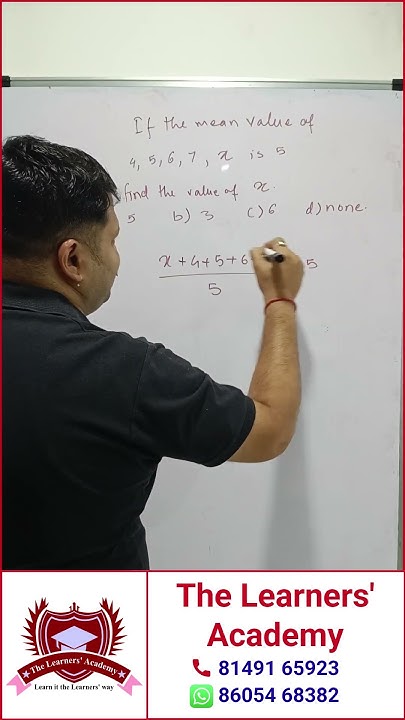 If the mean value of
4, 5, 6, 7, x is 5
find the value of x.
5 b) 3 c) 6 d) none.
x + 4 + 5 + 6 5
5
The Learners' Academy
Learn it the Learners' way
The Learners'
Academy
81491 65923
86054 68382